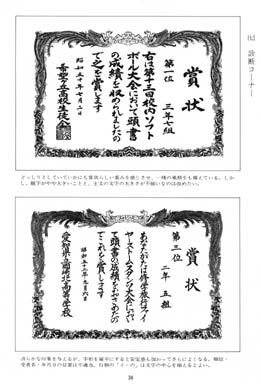 (七) 診断コーナー
賞状
第一位
三年七組
右は第十三回校内ソフト
ボール大会において頭書
の成績を収められましたの
で之を賞します
昭和五十年七月二日
希望ヶ丘高校生徒会
どっしりとしていていかにも賞状らしい重みを感じさせ、一種の風格をも備えている。しか
し、題字がやや大きいことと、主文の文字の大きさが不揃いなのは改めたい。
賞状
第三位
二年五組
あなたがたは修学旅行クイ
大会におい
て頭書の成績をおさめられ
これを賞します
昭和五十
高等学校
清らかな印象を与えるが、字形を扁平にすると安定感も加わってさらによくなる。順位・
受者名・年月日の位置は不適当。行頭の「イ・の」は文字の中心を揃えるとよい。
38